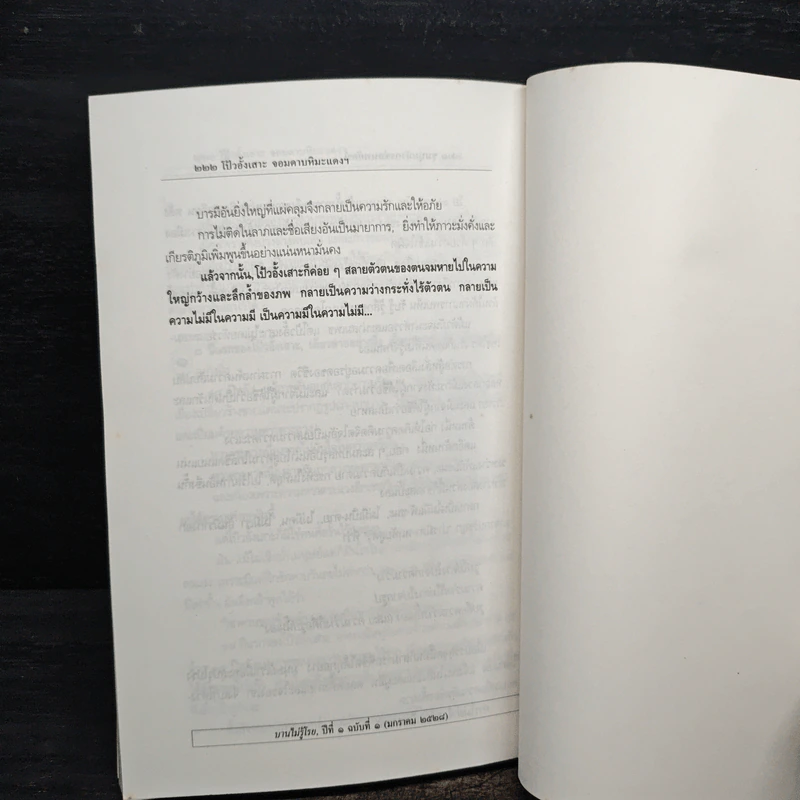 ๒๒๒ โป้วอั้งเสาะ จอมดาบหิมะแดงฯ
บารมีอันยิ่งใหญ่ที่แผ่คลุมจึงกลายเป็นความรักและให้อภัย
การไม่ติดในลาภและชื่อเสียงอันเป็นมายาการ, ยิ่งทำให้ภาวะมั่งคั่งและ
เกียรติภูมิเพิ่มพูนขึ้นอย่างแน่นหนามั่นคง
แล้วจากนั้น, โป้วอั้งเสาะก็ค่อย ๆ สลายตัวตนของตนจมหายไปในความ
ใหญ่กว้างและลึกล้ำของภพ กลายเป็นความว่างกระทั่งไร้ตัวตน กลายเป็น
ความไม่มีในความมี เป็นความมีในความไม่มี...
บานไม่รู้โรย, ปีที่ ๑ ฉบับที่ ๑ (มกราคม ๒๕๒๘)